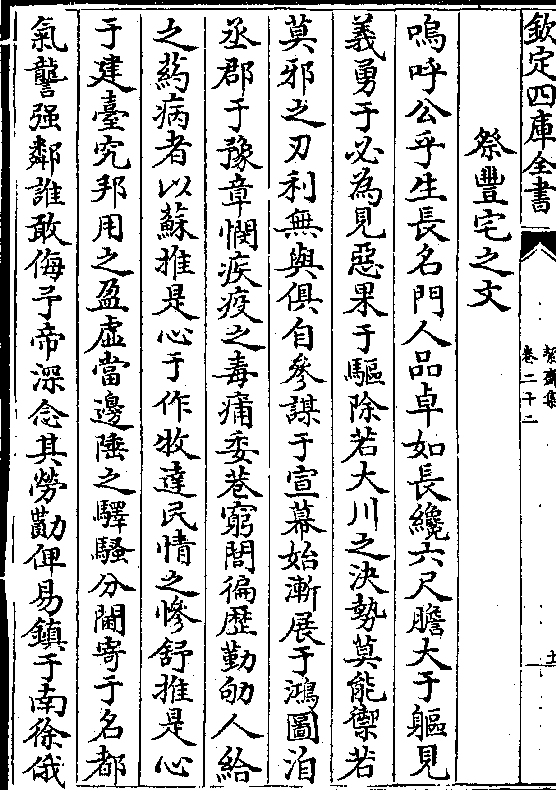 欽定四庫全書
絜齋集
卷二十二
土
祭豐宅之文
嗚呼公乎生長名門人品卓如長纔六尺膽大于軀見
義勇于必為見惡果于驅除若大川之決勢莫能禦若
莫邪之刃利無與俱自參謀于宣幕始漸展于鴻圖洎
丞郡于豫章憫疾疫之毒痡委巷窮閻徧歷勤劬人給
之藥病者以蘇推是心于作牧達民情之慘舒推是心
于建臺究邦用之盈虛當邊陲之驛騷分閫寄于名都
氣讋强鄰誰敢侮予帝深念其勞勩俾易鎮于南徐俄